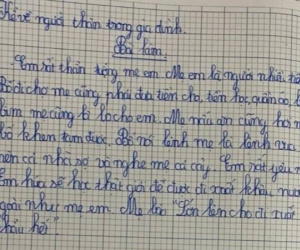 Kể về người thân trong gia đình.
Bài làm
Em rất thần tượng mẹ em. Mẹ em là người nhiều tiền
Bố đi chợ mẹ cũng phải đưa tiền cho, tiền học, quần áo,
bỉm mẹ cũng lo cho em. Mẹ nấu ăn cũng
bố khen tạm được. Bố nói lính mẹ là lính vua
nên cả nhà sợ và nghe mẹ cả cây. Em rất yêu
Em hứa sẽ học thật giỏi để được đi xuất khẩu nước
ngoài như mẹ em. Mẹ bảo "Lớn lên cho đi xuất
khẩu hết".